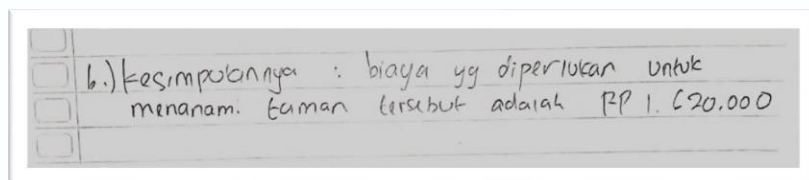 b.) Kesimpulannya : biaya yg diperlukan untuk
menanam. taman tersebut adalah RP 1.620.000